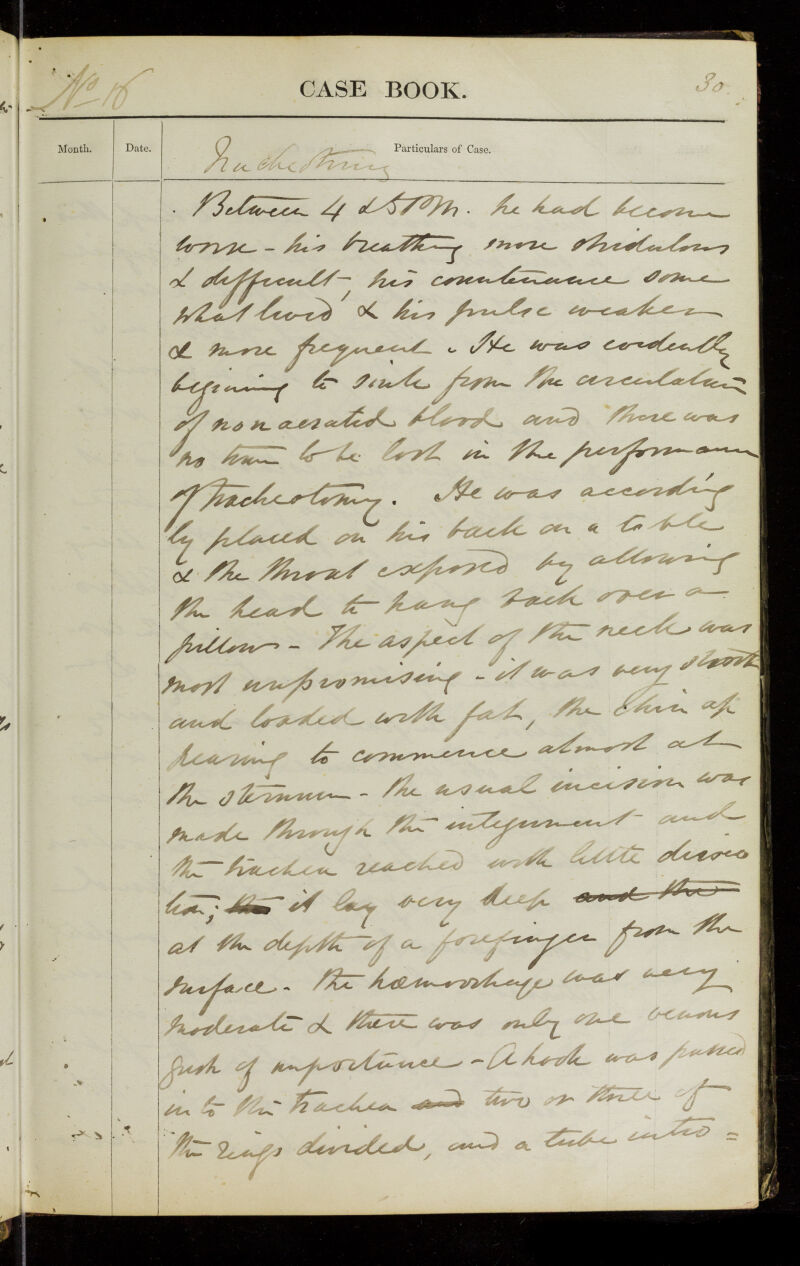 No 16
CASE BOOK.
30
Month. Date. Particulars of Case.
Tracheotomy
Between 4 & 5 P.M. he had become
worse - his breathing more stridulous
& difficult, his countenance some
what livid & his pulse weaker
& more frequent. He was evidently
begining to sink from the circulation
of non aerated blood and there was
no time to be lost in the performance
of tracheotomy. He was according
ly placed on his back on a table
& the throat exposed by allowing
the head to hang back over a
pillow - The aspect of the neck was
most unpromising - it was very short
and loaded with fat, the chin ap
pearing to commence almost at
the sternum - the usual incision was
made through the integument and
the trachea reached with little dissec
tion; the it lay very deep and the
at the depth of a forefinger from the
surface. The hæmorrhage was very
moderate & there was only one venous
gush of importance - A hook was passed
in to the trachea and two or three of
the rings divided, and a tube intro =